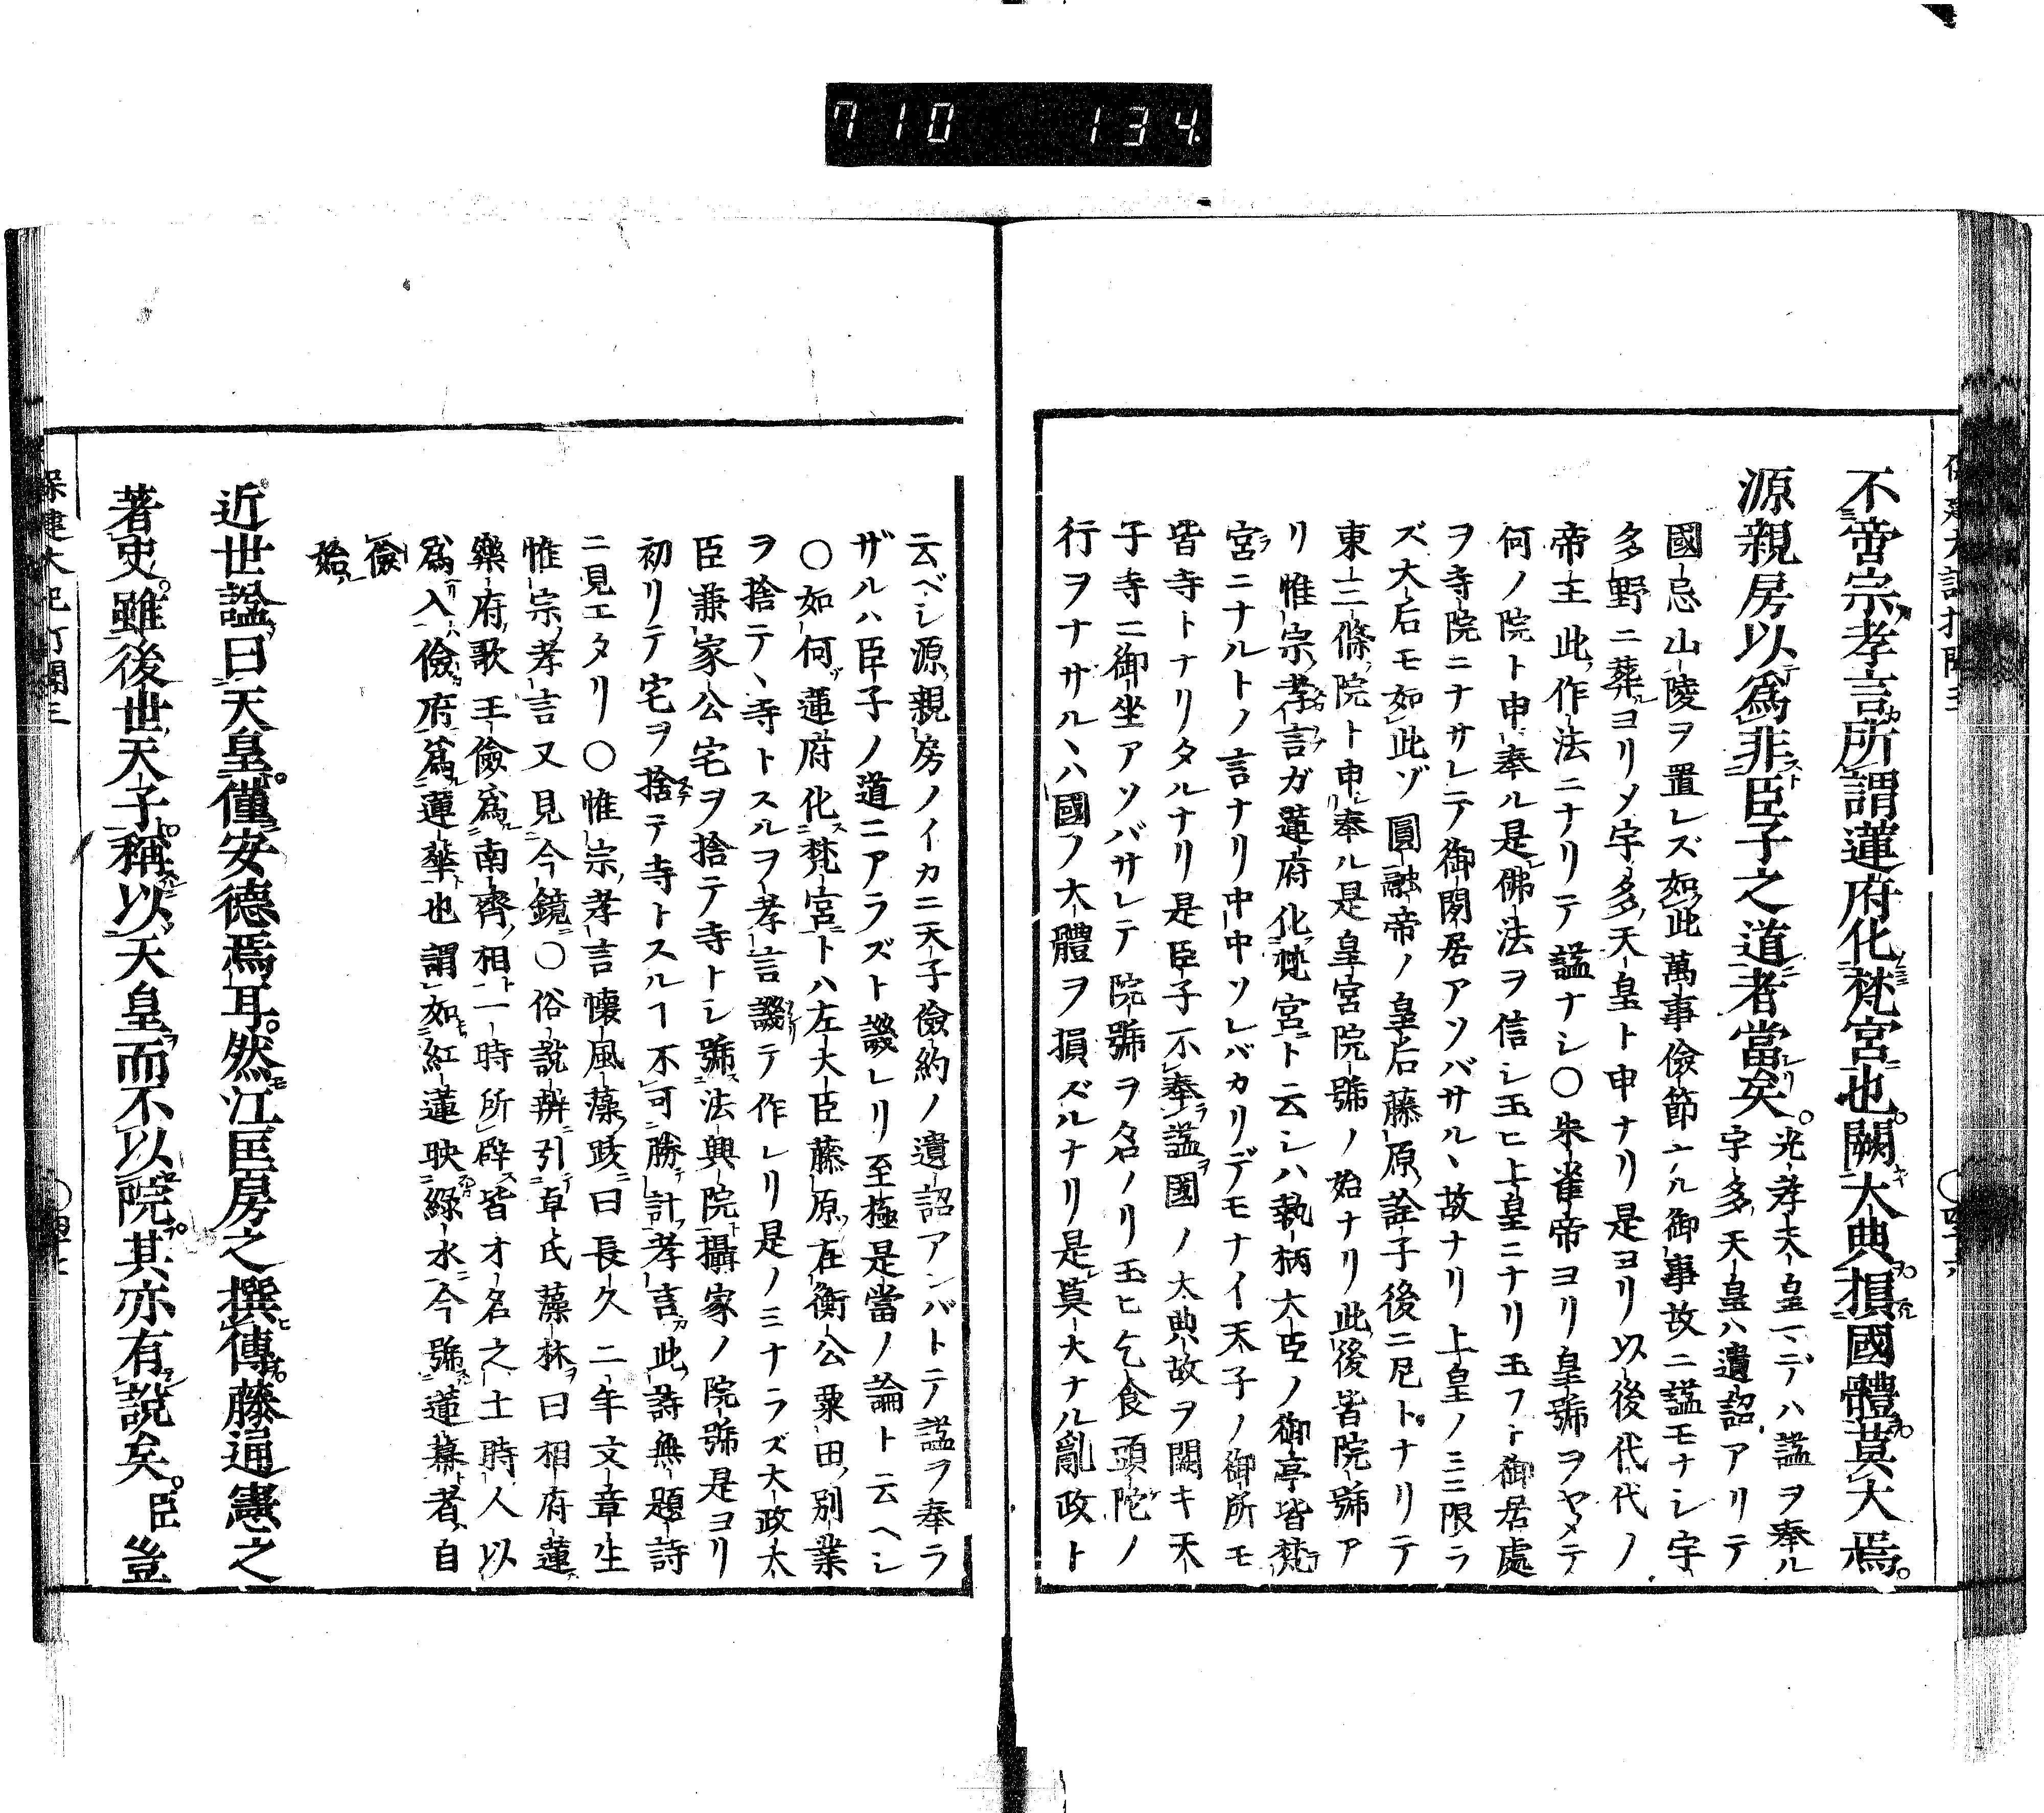 710 134
不帝宗孝言所謂蓮府化梵宮也。闕大典損國體莫大焉。
源親房以爲非臣子之道者當矣。光孝天皇マデハ諡ヲ奉ル宇多天皇ハ遺詔アリテ
國忌山陵ヲ置レズ如此萬事儉節ニナル御事故ニ諡モナシ宇
多野ニ葬ルヨリメ宇多天皇ト申ナリ是ヨリ以後代代ノ
帝王此作法ニナリテ諡ナシ〇朱雀帝ヨリ皇號ヲヤメテ
何ノ院ト申奉ル是佛法ヲ信シ玉ヒ上皇ニナリ玉フト御居處
ヲ寺院ニナサレテ御閑居アソバサル丶故ナリ上皇ノミニ限ラ
ズ大后モ如此ゾ圓融帝ノ皇后藤原詮子後ニ尼トナリテ
東三條院ト申奉ル是皇宮院號ノ始ナリ此後皆院號ア
リ惟宗孝言ガ蓮府化梵宮ト云シハ執柄大臣ノ御亭皆梵
宮ニナルトノ言ナリ中中ソレバカリデモナイ天子ノ御所モ
皆寺トナリタルナリ是臣子不奉諡國ノ大典故ヲ闕キ天
子寺ニ御坐アソバサレテ院號ヲ名ノリ玉ヒ乞食頭陀ノ
行ヲナサル丶ハ國ノ大體ヲ損ズルナリ是莫大ナル亂政ト
云ベシ源親房ノイカニ天子儉約ノ遺詔アンバトニテ諡ヲ奉ラ
ザルハ臣子ノ道ニアラズト譏レリ至極是當ノ論ト云ヘシ
〇如何蓮府化梵宮トハ左大臣藤原在衡公粟田別業
ヲ捨テ丶寺トスルヲ孝言譏テ作レリ是ノミナラズ大政大
臣兼家公宅ヲ捨テ寺トシ號法興院攝家ノ院號是ヨリ
初リテ宅ヲ捨テ寺トスルヿ不可勝計孝言此詩無題詩
ニ見エタリ〇惟宗孝言懷風藻跋曰長久二年文章生
惟宗孝言又見今鏡〇俗說辨引卓氏藻林曰相府蓮
樂府歌王儉爲南齊相一時所辟皆才名之士時人以
爲入儉府爲蓮華也謂如紅蓮映綠水今號蓮幕者自
儉始
近世諡曰天皇。僅安德焉耳。然江匡房之撰傳藤通憲之
著史。雖後世天子稱以天皇而不以院。其亦有說矣。臣豈